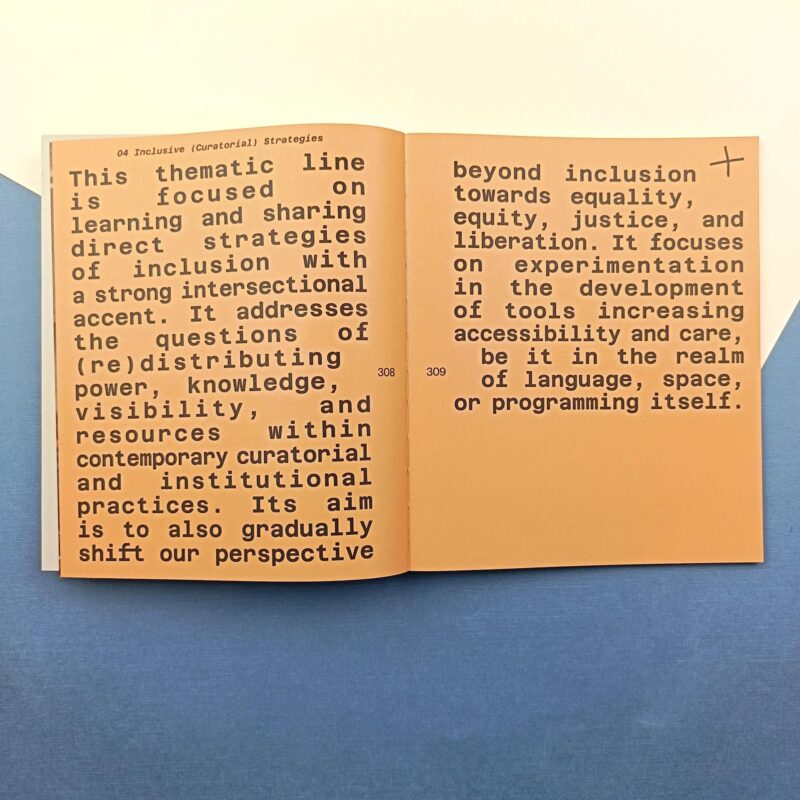 04 Inclusive (Curatorial) Strategies
This thematic line
is focused on
learning and sharing
direct strategies
of inclusion with
a strong intersectional
accent. It addresses
the questions of
(re)distributing
power, knowledge,
visibility, and
resources within
contemporary curatorial
and institutional
practices. Its aim
is to also gradually
shift our perspective
308
309
beyond inclusion
towards equality,
equity, justice, and
liberation. It focuses
on experimentation
in the development
of tools increasing
accessibility and care,
be it in the realm
of language, space,
or programming itself.